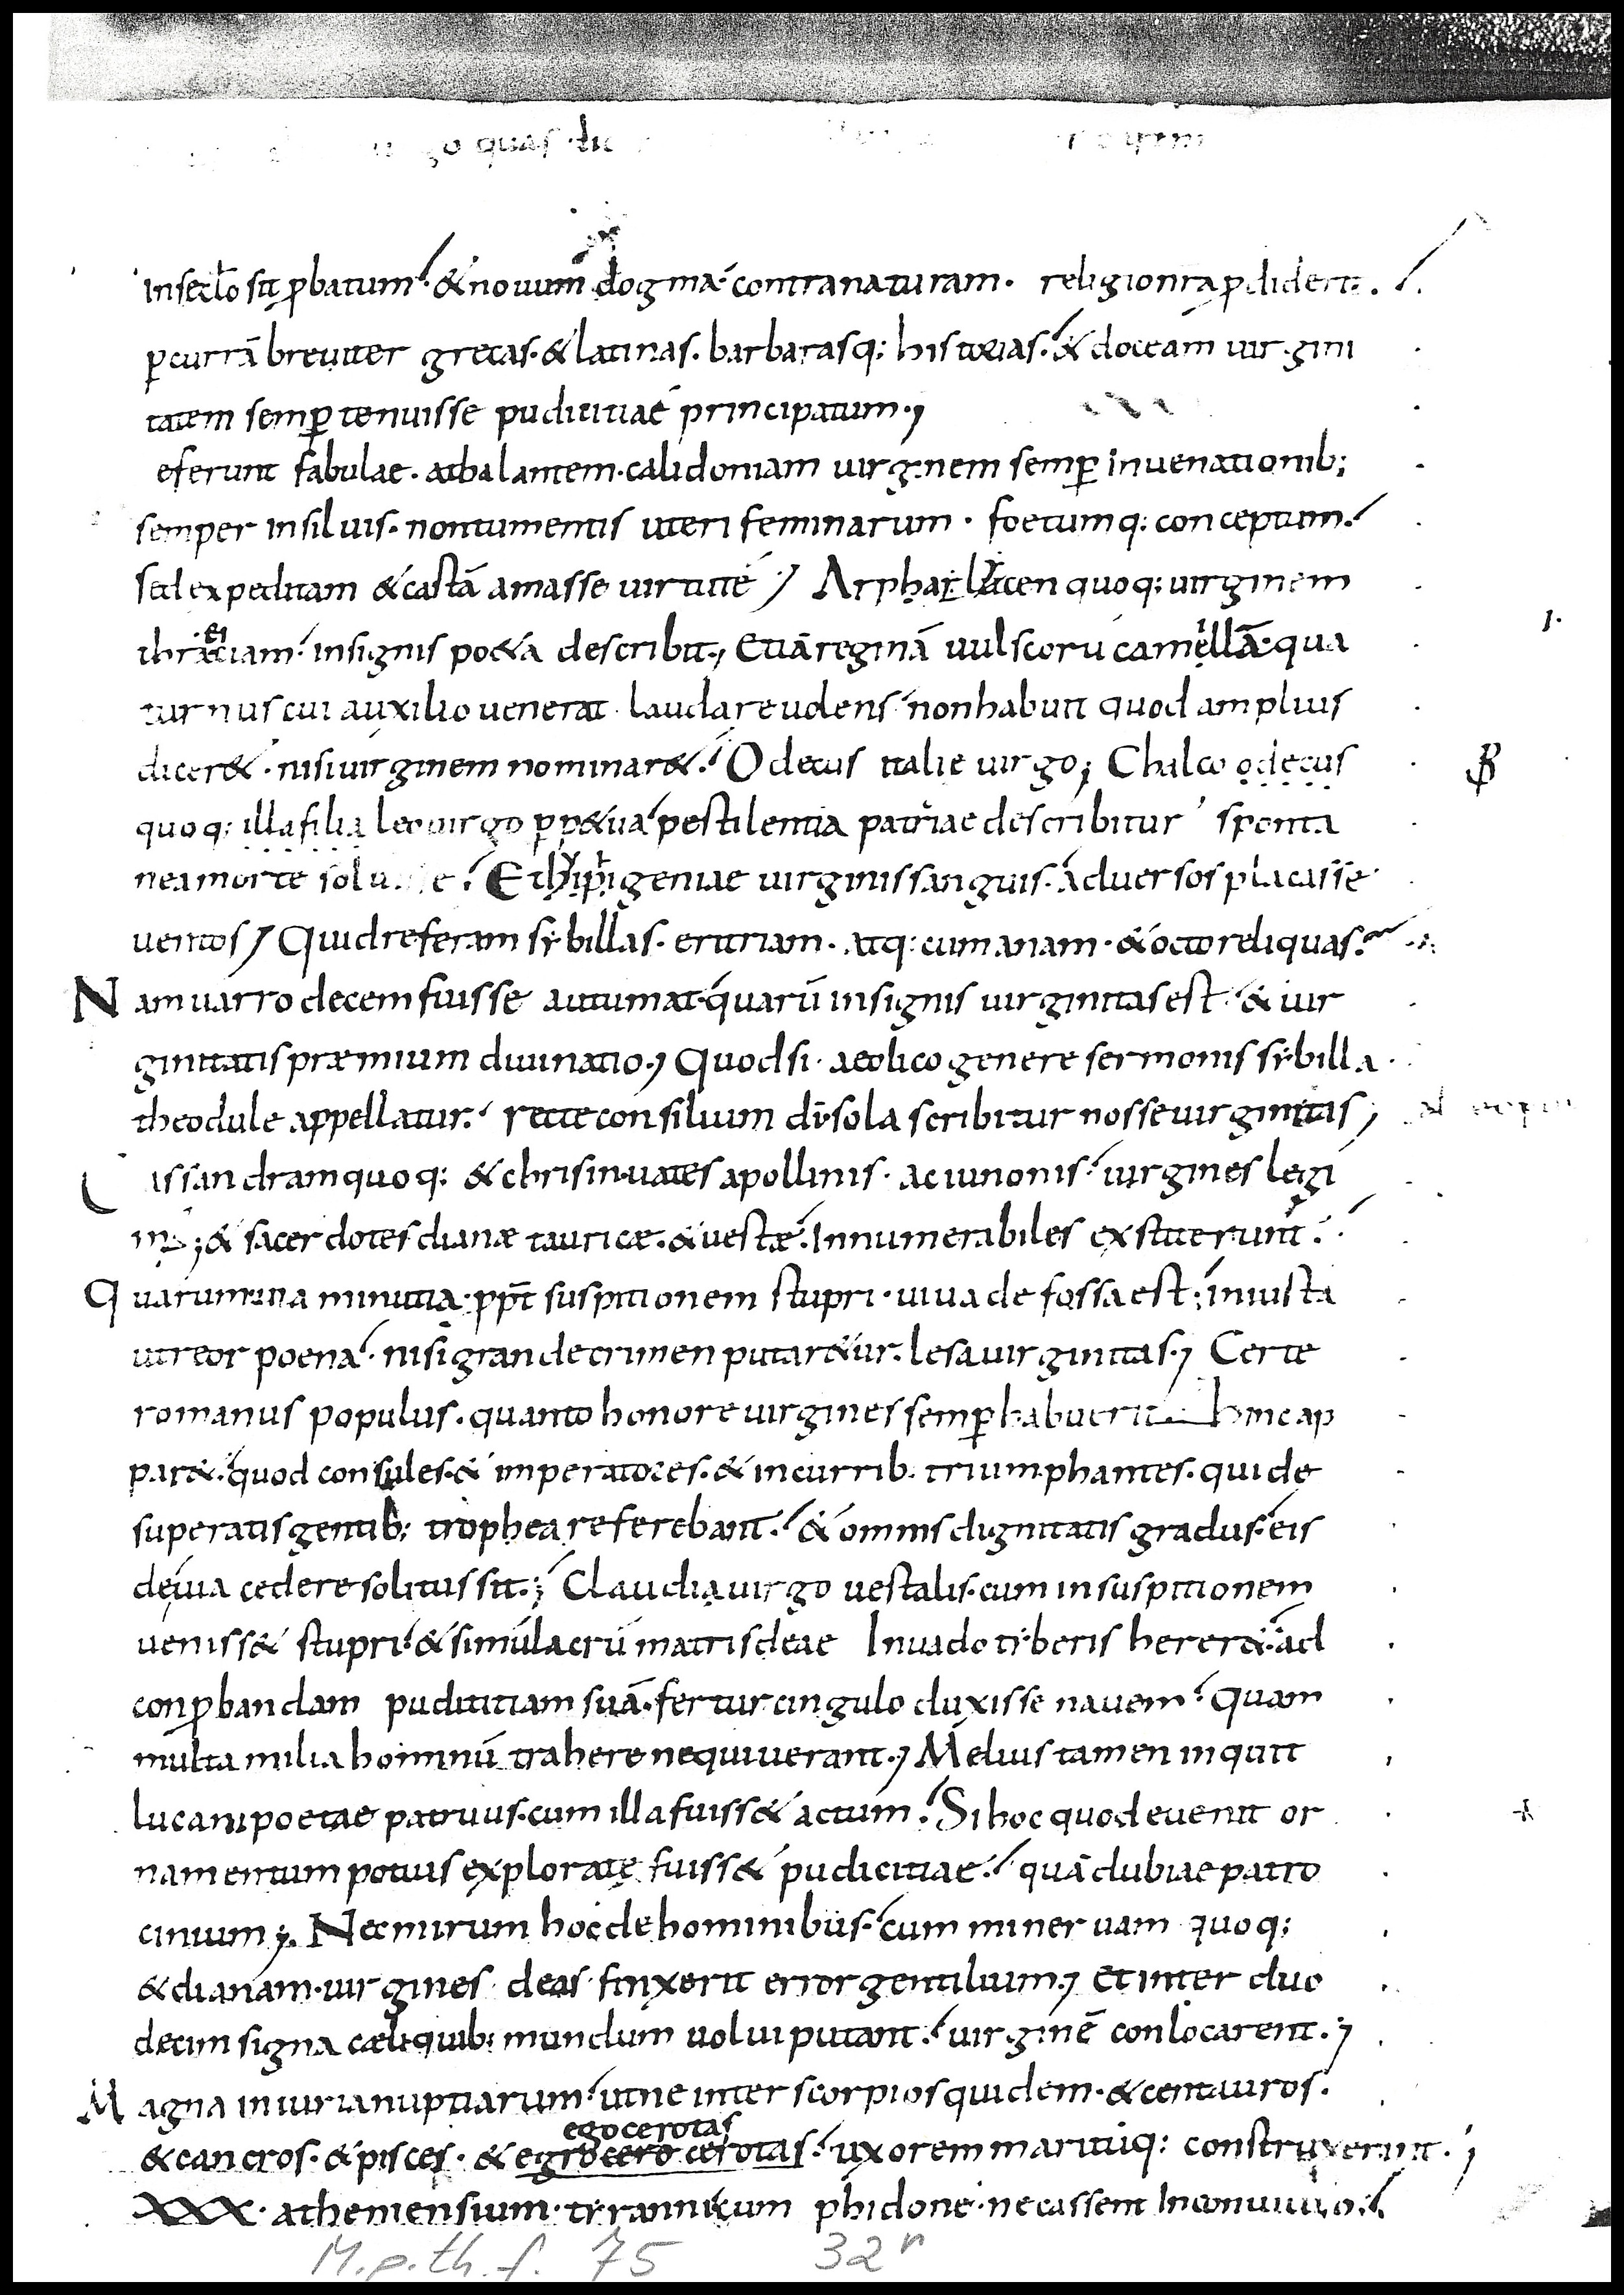 in sec̅lo sit ꝓbatum. & nouum dogma contra naturam. religionra ꝑdidert.
ꝑcurrā breuiter grecas. & latinas. barbarasq; historias. & doceam uirgini
tatem semꝑ tenuisse pudititiae principatum.
eferunt fabulae. athalantem. calidoniam uirginem semꝑ in uenationib;
semper in siluis. non tumentis uteri feminarum. foetumq; conceptum.
sed expeditam & castā amasse uirtutē Arphalicen quoq; uirginem
insignis po&a describit, Etiā reginā uulscorū camellā. qua
turnus cui auxilio uenerat. laudare uolens non habuit quod amplius
dicer&. nisi uirginem nominar&. O decus italie uirgo; Chalco o decus
quoq; illa filia leo uirgo ꝓp& ua pestilentia patriae describitur sponta
nea morte solu
Et hiphigeniae uirginis sanguis. aduersos placasse
uentos Quid referam sybillas. eritriam. atq; cumanam. & octo reliquas.
Nam uarro decem fuisse autumat. quarū insignis uirginitas est. & uir
ginitatis præmium diuinatio, Quod si. aeolico genere sermonis sybilla.
theodule appellatur. recte consilium dī sola scribitur nosse uirginitis,
issandram quoq; & chrisin. uates apollinis. ac iunonis. uirgines legi
m; & sacerdotes dianæ tauricæ. & uestæ. Innumerabiles exstiterunt.
Quarum una minutia. ꝓpt̄ suspitionem stupri. uiua defossa est. iniusta
utreor poena. nisi grande crimen putar&ur. lesa uirginitas., Certe
romanus populus. quanto honore uirgines semꝑ habuerit hinc ap
par&. quod consules. & imperatores. & in currib. triumphantes. qui de
superatis gentib; trophea referebant. & omnis dignitatis gradus. eis
de uia cedere solitus sit. Claudia uirgo uestalis. cum in suspitionem
ueniss& stupri. & simulacrū matris deae In uado tyberis herer&. ad
conꝓbandam pudititiam suā. fertur cingulo duxisse nauem. quam
multa milia hominū trahere nequiuerant., Melius tamen inquit
lucani poetae patruus. cum illa fuiss& actum. Si hoc quod euenit or
namentum potuis exploratę fuiss& pudicitiae. quā dubiae patro
cinium, Nec mirum hoc de hominibus. cum mineruam quoq;
& dianam. uirgines deas finxerit error gentilium., et inter duo
decim signa cæli quib; mundum uolui putant. uirginē conlocarent.,
Magna iniuria nuptiarum. ut ne inter scorpios quidem. & centauros.
egocerotas
& cancros. & pisces. & egrocero cerotas. uxorem maritūq; construxerunt.
XXX. atheniensium. tyranni cum phidone. necassent In conuiuio.
M.p.th.f. 75 32r